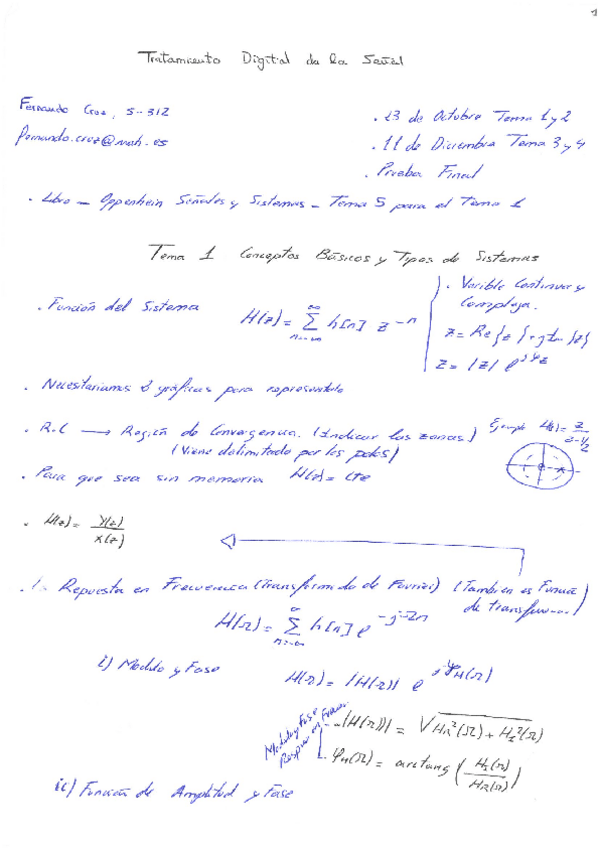 1
Tratamiento Digital de la Señal
Fernando Cruz, S-312
fernando.cruz@uah.es
. 13 de Octubre Tema 1 y 2
. 11 de Diciembre Tema 3 y 4
. Prueba Final
. Libro – Oppenhein Señales y Sistemas – Tema 5 para el Tema 1
Tema 1 Conceptos Básicos y Tipos de Sistemas
. Función del Sistema H(z) = ∑ h[n] z^-n
n=-∞
∞
. Varible Continua y
Compleja.
z = |z| e^jφz
. Necesitariamos 2 gráficas para representarlo
. R.C ⟶ Región de Convergencia. (Indicar las zonas)
(Viene delimitado por los polos)
Ejemplo H(z) = z / z-1/2
. Para que sea sin memoria H(z) = Cte
. H(z) = Y(z) / X(z)
Repuesta en Frecuencia (Transformada de Fourier) (Tambien es Función
de transferencia)
H(Ω) = ∑ h[n] e^-jΩn
n=-∞
∞
i) Modulo y Fase H(Ω) = |H(Ω)| e^jφH(Ω)
Modulo y Fase
|H(Ω)| = √HR²(Ω) + HI²(Ω)
φH(Ω) = arctang (HI(Ω) / HR(Ω))
ii) Función de Amplitud y Fase